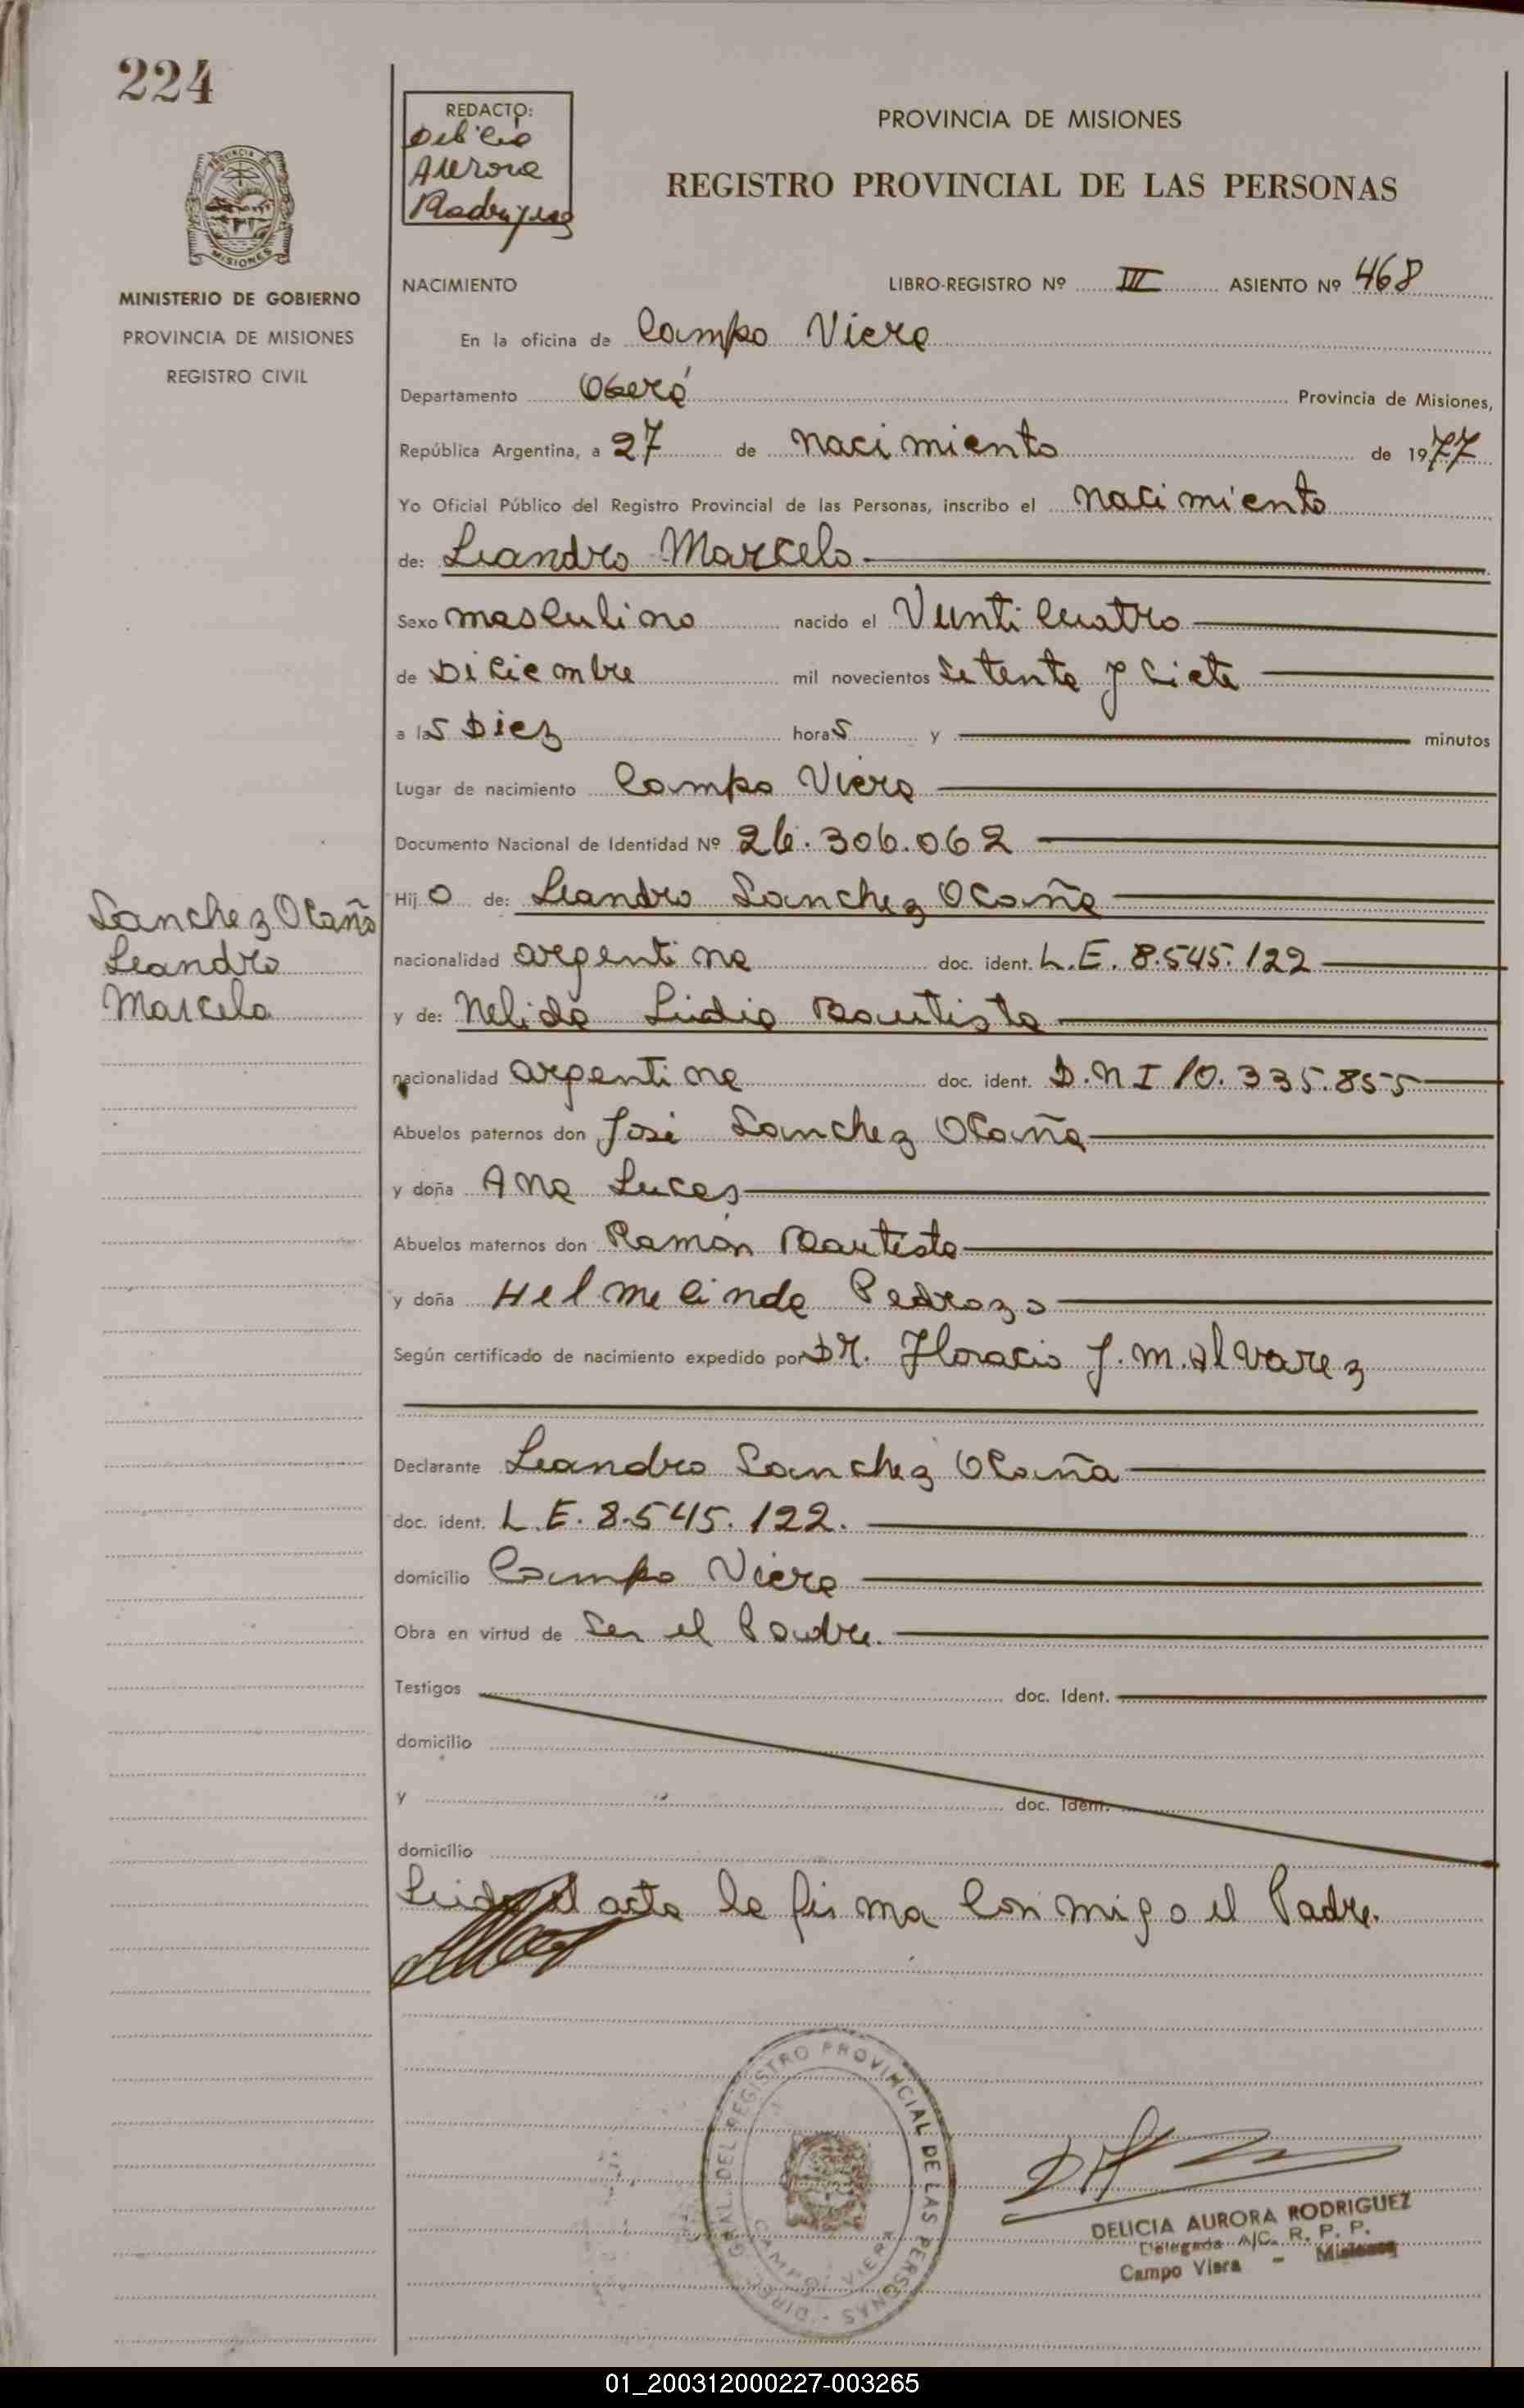 224
REDACTO:
Delicia
Aurora
Rodriguez
PROVINCIA DE MISIONES
REGISTRO PROVINCIAL DE LAS PERSONAS
MISIONES
MINISTERIO DE GOBIERNO
PROVINCIA DE MISIONES
REGISTRO CIVIL
NACIMIENTO LIBRO-REGISTRO Nº III ASIENTO Nº 468
En la oficina de Campo Viera
Departamento Oberá Provincia de Misiones,
República Argentina, a 27 de nacimiento de 1977
Yo Oficial Público del Registro Provincial de las Personas, inscribo el nacimiento
de: Leandro Marcelo
Sexo masculino nacido el Veinticuatro
de Diciembre mil novecientos setenta y siete
a las Diez horas y minutos
Lugar de nacimiento Campo Viera
Documento Nacional de Identidad Nº 26.306.062
Hijo de: Leandro Sanchez Ocaña
Sanchez Ocaña
Leandro
Marcelo
nacionalidad argentina doc. ident. L.E. 8.545.122
y de: Nelida Lidia Bautista
nacionalidad argentina doc. ident. D.N I 10.335.855
Abuelos paternos don José Sanchez Ocaña
y doña Ana Lucas
Abuelos maternos don Ramón Bautista
y doña Helmecinda Pedrozo
Según certificado de nacimiento expedido por DR. Horacio J. M. Alvarez
Declarante Leandro Sanchez Ocaña
doc. ident. L.E. 8.545.122.
domicilio Campo Viera
Obra en virtud de ser el Padre.
Testigos doc. Ident.
domicilio
y doc. Ident.
domicilio
Leida el acta la firma conmigo el Padre.
DIREC. GRAL. DEL REGISTRO PROVINCIAL DE LAS PERSONAS
CAMPO VIERA
DELICIA AURORA RODRIGUEZ
Delegada A/C. R. P. P.
Campo Viera - Misiones
01_200312000227-003265